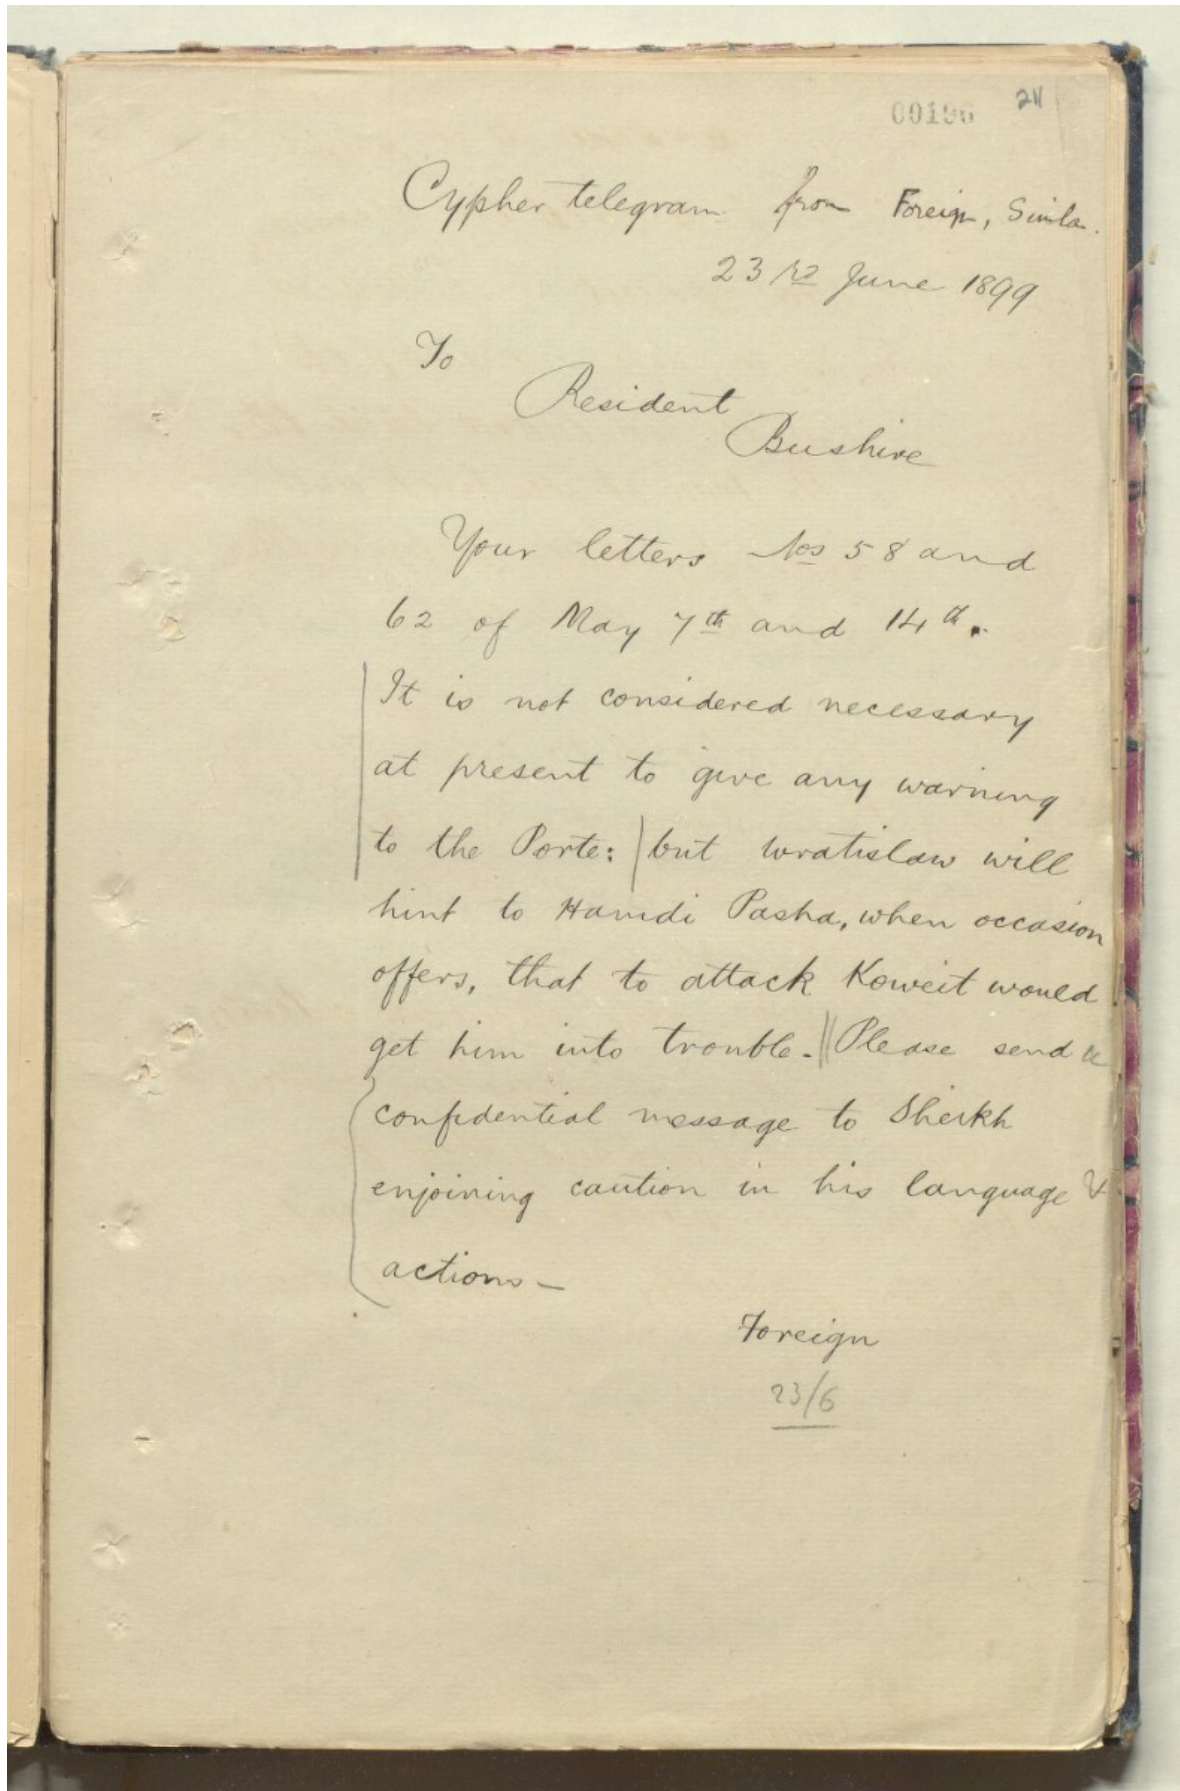 00196 211
Cypher telegram from Foreign, Simla.
23rd June 1899
To
Resident
Bushire
Your letters Nos 58 and
62 of May 7th and 14th.
It is not considered necessary
at present to give any warning
to the Porte: but Wratislaw will
hint to Hamdi Pasha, when occasion
offers, that to attack Koweit would
get him into trouble. Please send a
confidential message to Sheikh
enjoining caution in his language &
actions—
Foreign
23/6